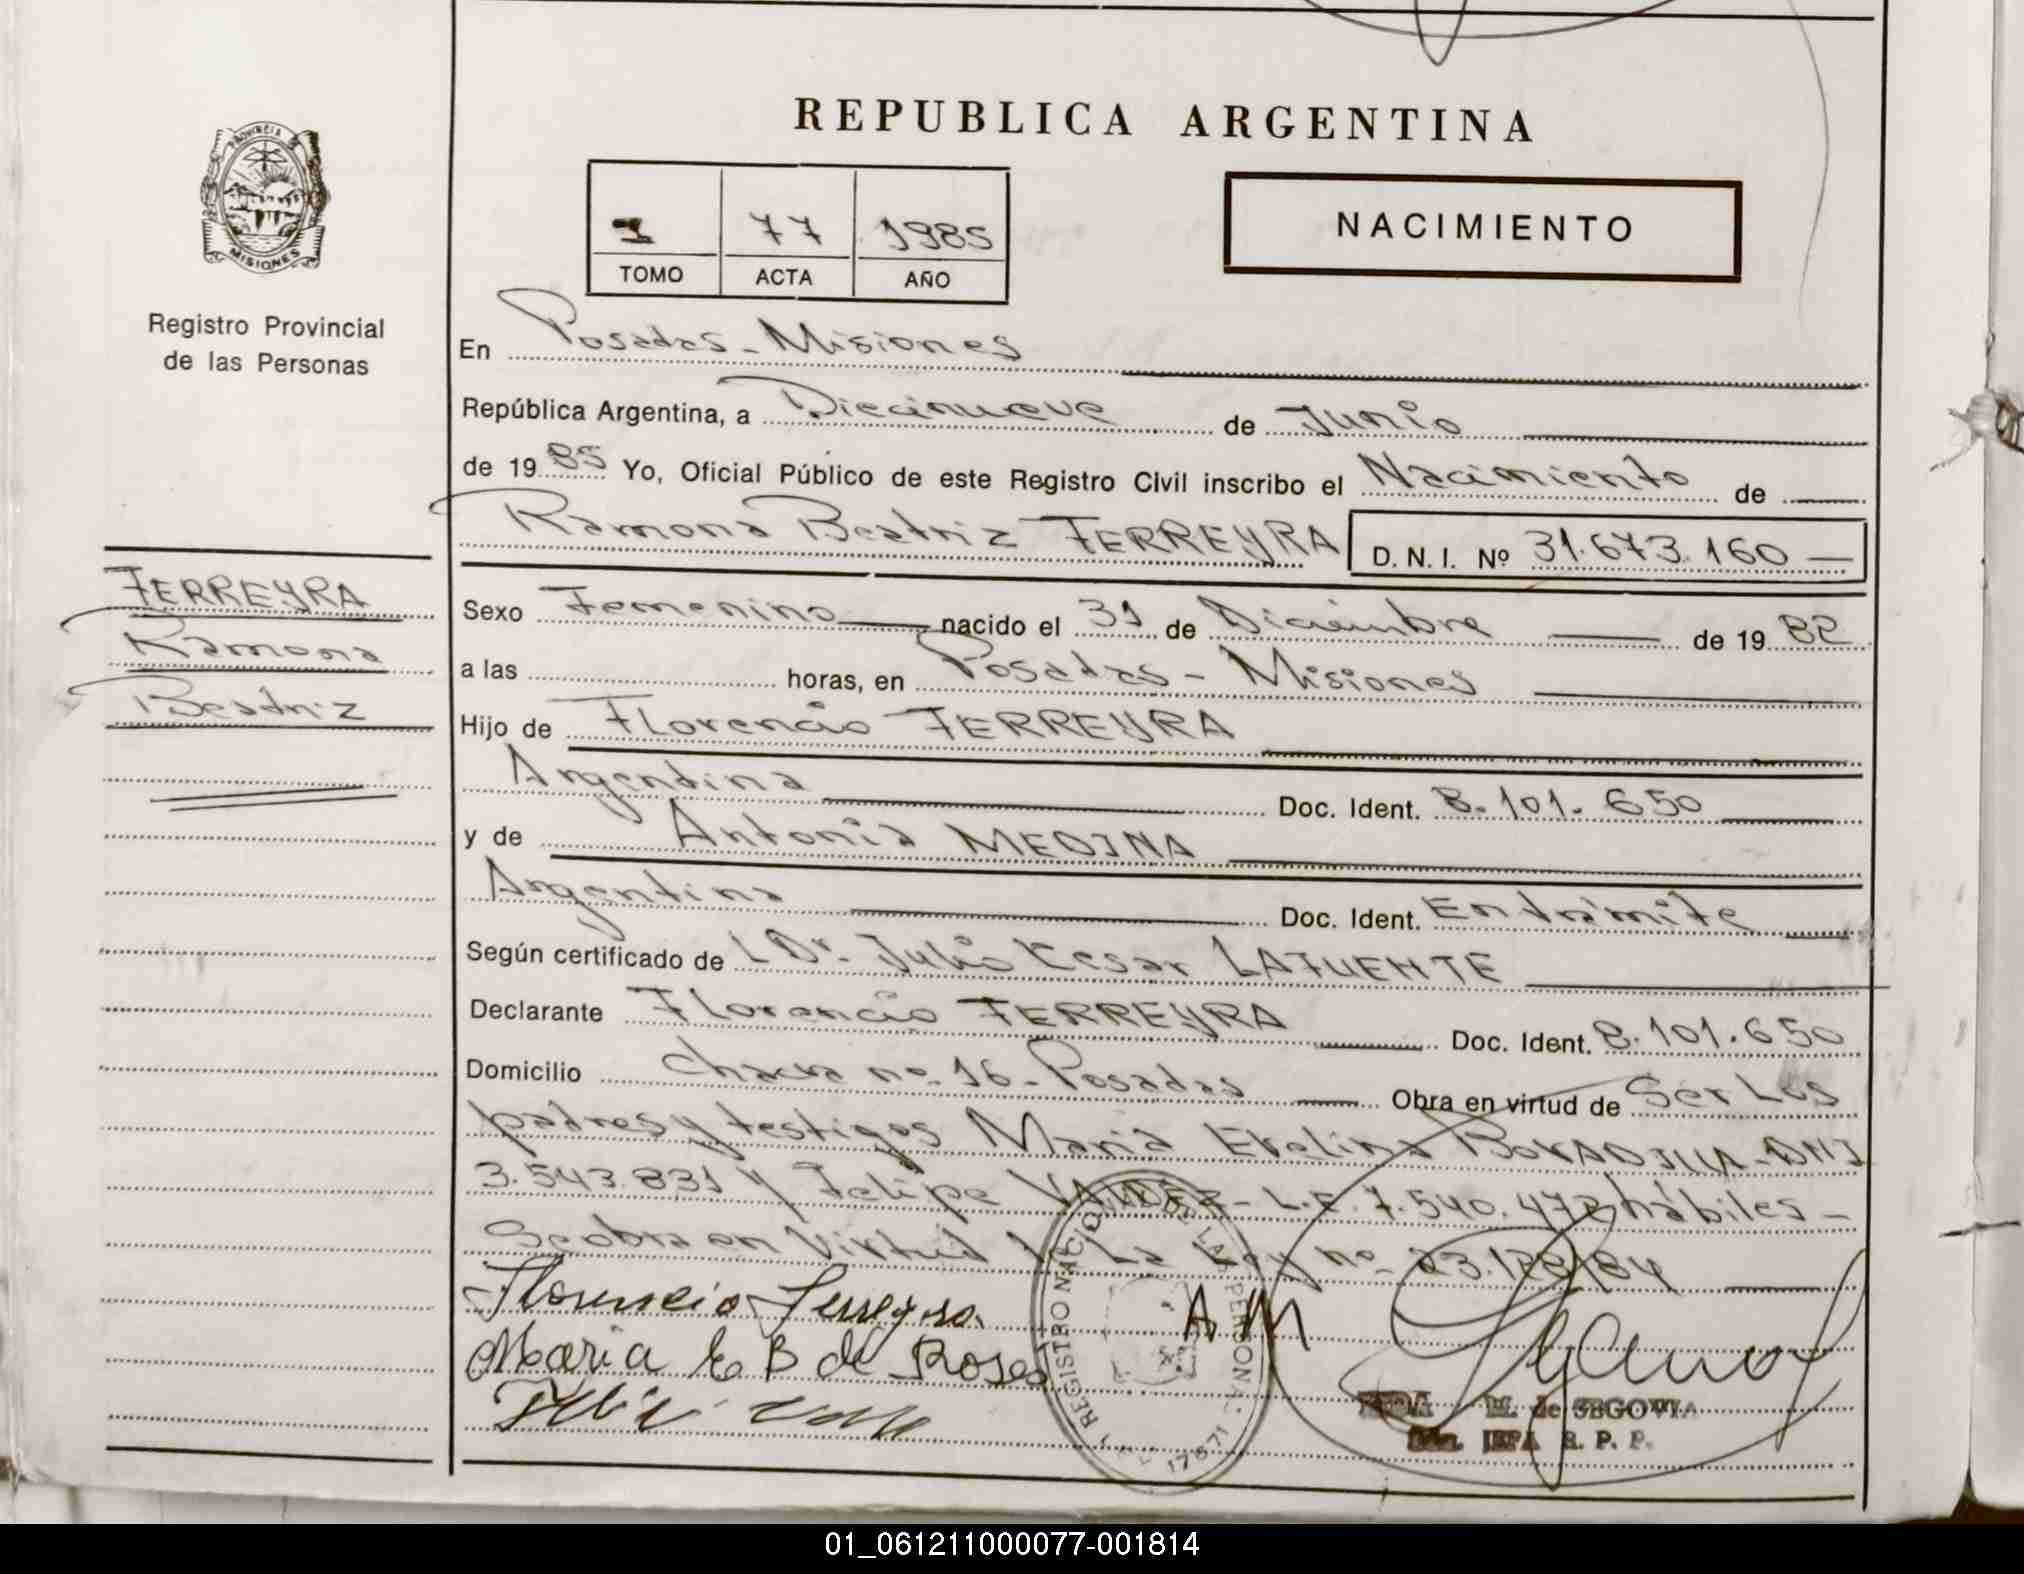 REPUBLICA ARGENTINA
PROVINCIA DE
MISIONES
Registro Provincial
de las Personas
1 77 1985
TOMO ACTA AÑO
NACIMIENTO
En Posadas - Misiones
República Argentina, a Diecinueve de Junio
de 19 85 Yo, Oficial Público de este Registro Civil inscribo el Nacimiento de
Ramona Beatriz FERREYRA D. N. I. Nº 31.673.160
FERREYRA
Ramona
Beatriz
Sexo Femenino nacido el 31 de Diciembre de 19 82
a las horas, en Posadas - Misiones
Hijo de Florencio FERREYRA
Argentina Doc. Ident. 8.101.650
y de Antonia MEDINA
Argentina Doc. Ident. En trámite
Según certificado de L Dr. Julio Cesar LAFUENTE
Declarante Florencio FERREYRA Doc. Ident. 8.101.650
Domicilio Chacra nº 16 - Posadas Obra en virtud de Ser Los
padres y testigos Maria Evelina BOVADILLA - DNI
3.543.831 y Felipe VALDEZ - L.E. 7.540.472 hábiles -
Se obra en Virtud La Ley nº 23.128/84
Florencio Ferreyra
Maria E B de Rosas
A M
REGISTRO NACIONAL DE LAS PERSONAS
17671
M. de SEGOVIA
R. P. P.
01_061211000077-001814